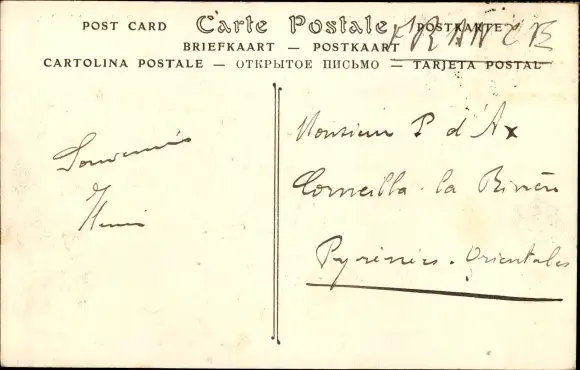 POST CARD Carte Postale POSTKARTE
FRANCE
BRIEFKAART — POSTKAART
CARTOLINA POSTALE — ОТКРЫТОЕ ПИСЬМО — TARJETA POSTAL
Souvenirs
Monsieur P d'Ax
Corneilla la Rivière
Pyrénées Orientales